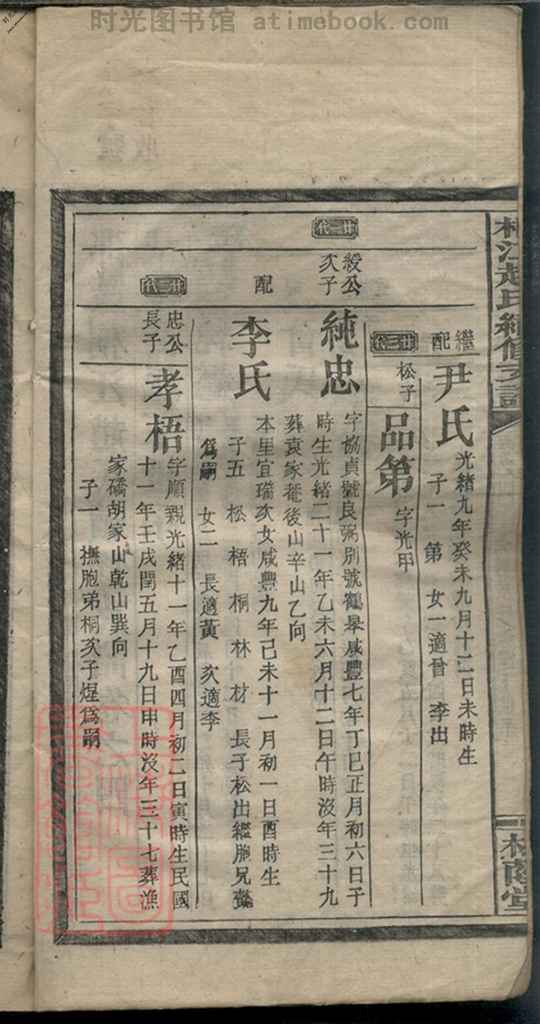 时光图书馆 atimebook.com
江趙氏續修支譜
蔭堂
繼配
尹氏
光緒九年癸未九月十二日未時生
子一 第 女一適曾 李出
廿三代
松子
品第
字光甲
廿一代
毅公
次子
純忠
字協貞號良弼別號鶴皋咸豐七年丁巳正月初六日子
時生光緒二十一年乙未六月十二日午時沒年三十九
葬袁家菴後山辛山乙向
配
李氏
本里宜瑞次女咸豐九年己未十一月初一日酉時生
子五 松 梧 桐 林 材 長子松出繼胞兄懿
爲嗣 女二 長適黃 次適李
廿二代
忠公
長子
孝梧
字順親光緒十一年乙酉四月初二日寅時生民國
十一年壬戌閏五月十九日申時沒年三十七葬漁
家磻胡家山乾山巽向
子一 撫胞弟桐次子煋爲嗣